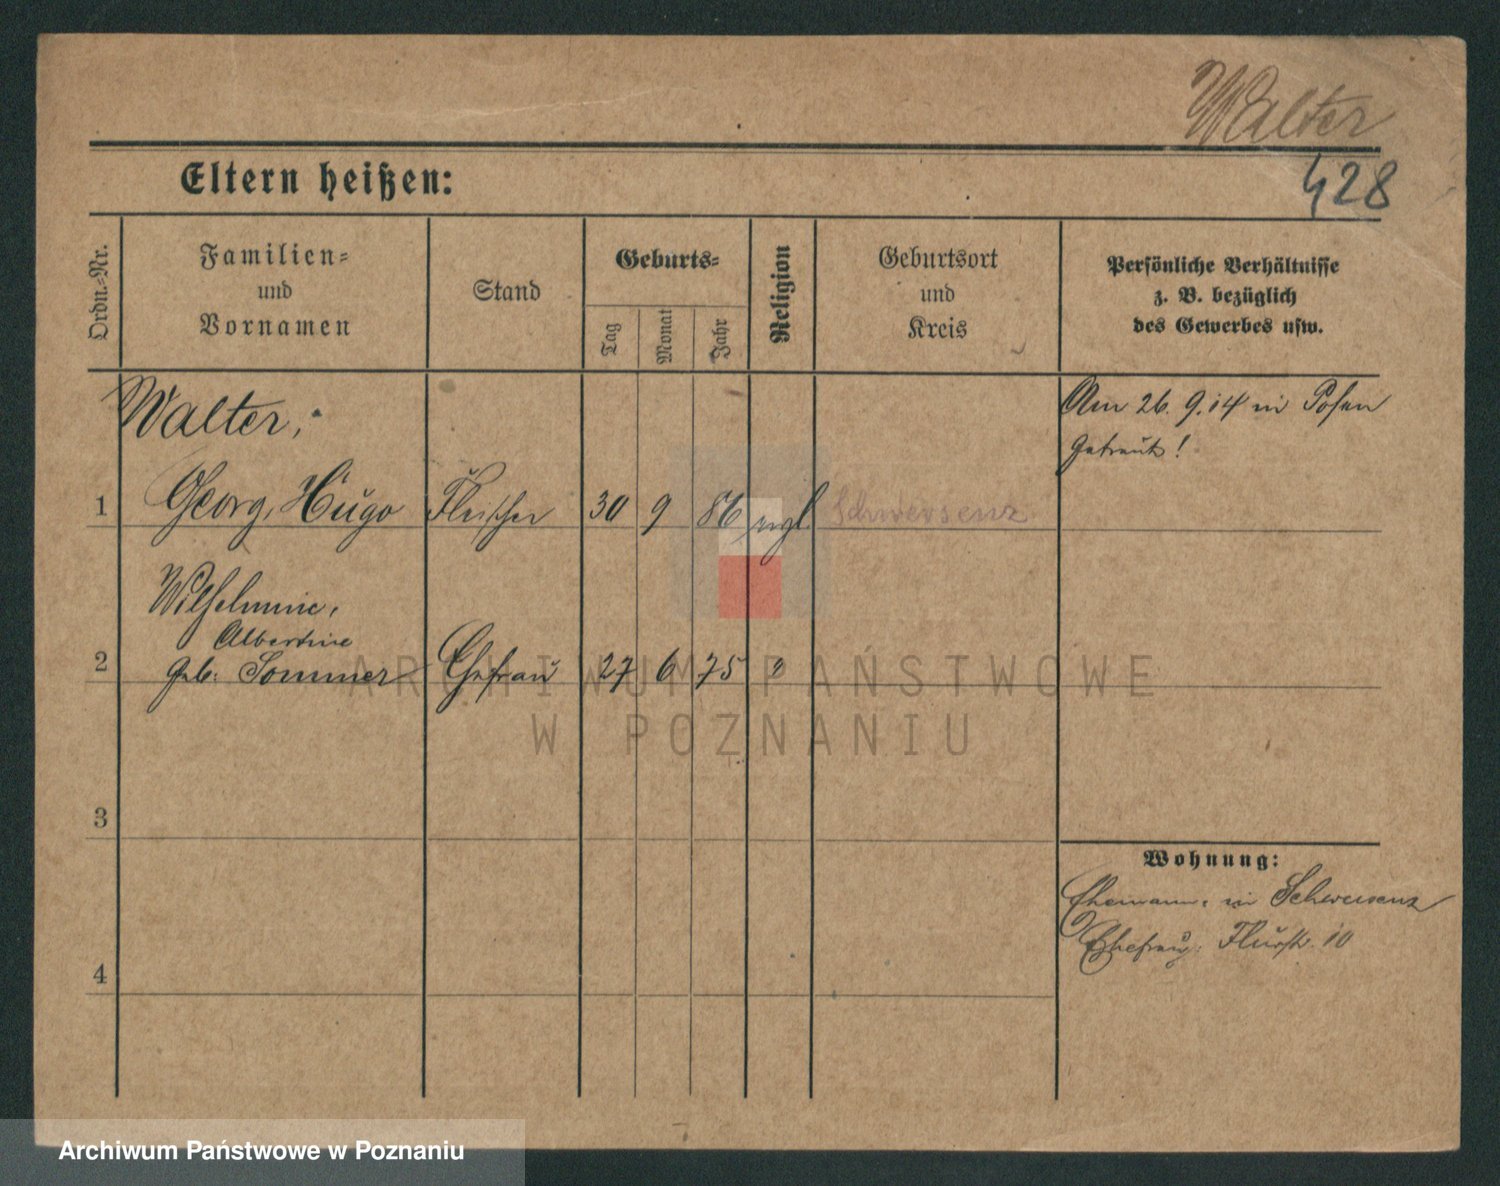 Walter
428
Eltern heißen:
Ordn.-Nr.
Familien-
und
Vornamen
Stand
Geburts-
Tag
Monat
Jahr
Religion
Geburtsort
und
Kreis
Persönliche Verhältnisse
z. B. bezüglich
des Gewerbes usw.
Walter,
Am 26. 9. 14 in Posen
getraut!
1 Georg, Hugo Fleischer 30 9 86 evgl. Schwersenz
Wilhelmine,
Albertine
2 geb. Sommer Ehefrau 27 6 75 "
ARCHIWUM PAŃSTWOWE
W POZNANIU
3
Wohnung:
Ehemann: in Schwersenz
Ehefrau: Flurstr. 10
4
Archiwum Państwowe w Poznaniu